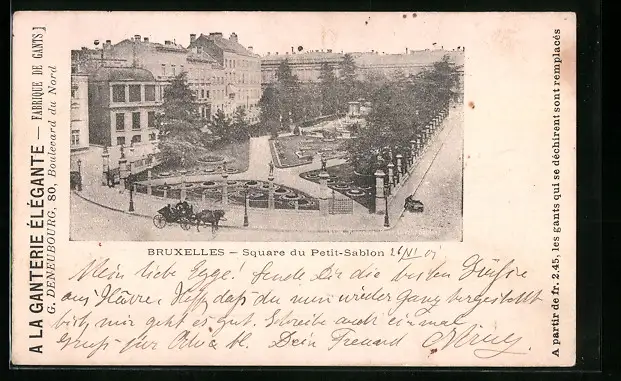 A LA GANTERIE ÉLÉGANTE — FABRIQUE DE GANTS]
G. DENEUBOURG, 80, Boulevard du Nord
BRUXELLES – Square du Petit-Sablon 26/VI 01
Mein liebe Sende Dir die besten
aus Hoff, daß du nun wieder Ganz hergestellt
bist, mir geht es gut. Schreibe auch einmal
Gruß für Dein Freund
A partir de fr. 2.45, les gants qui se déchirent sont remplacés